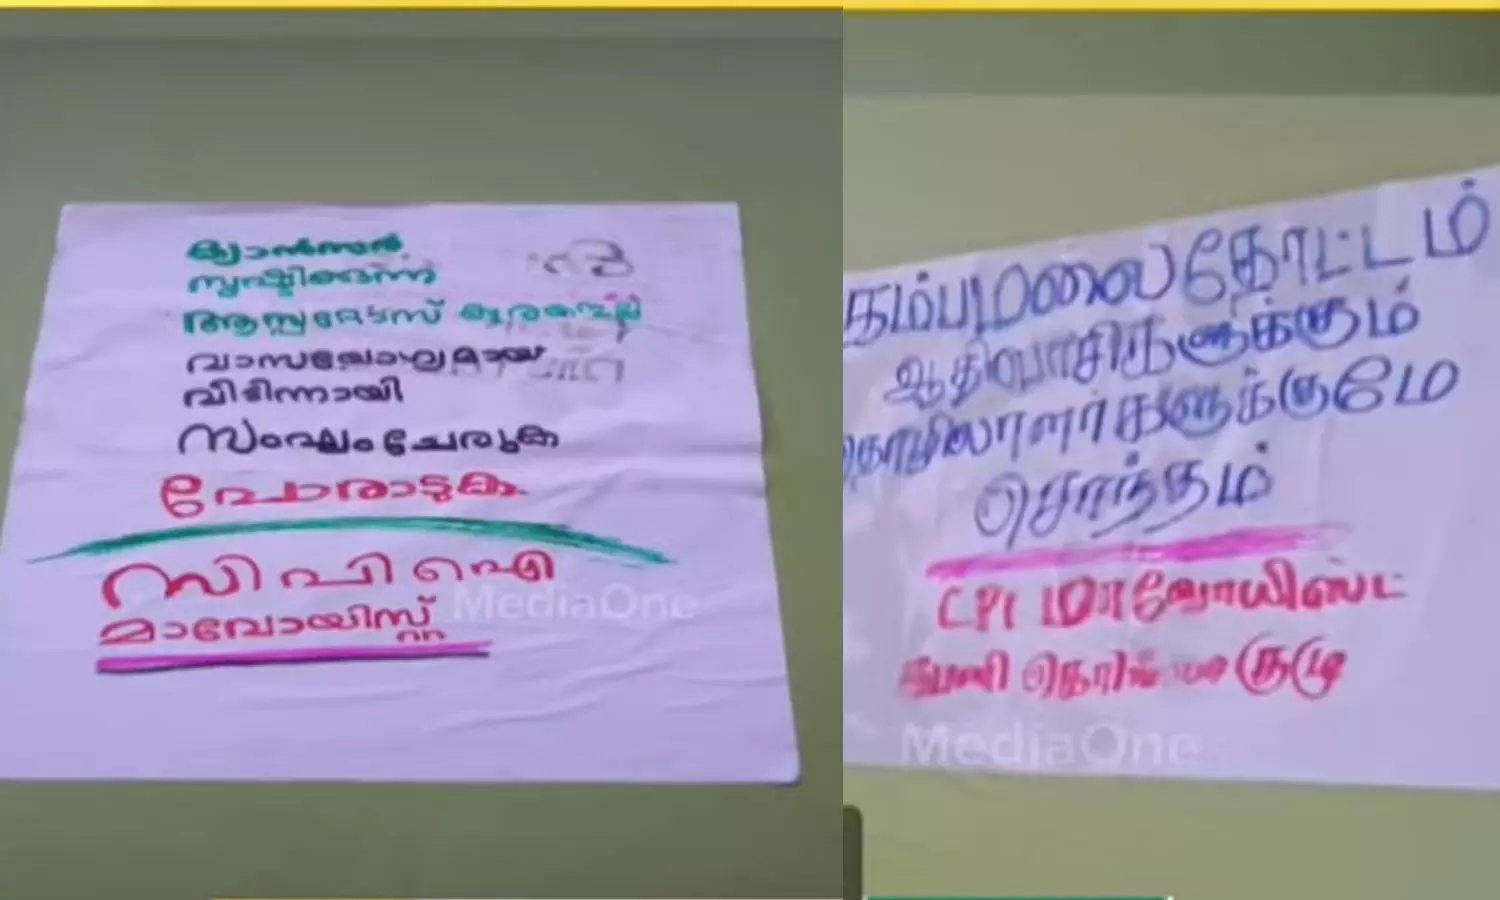 ക്യാൻസർ
സൃഷ്ടിക്കുന്ന
ആസ്ബറ്റോസ് കൂരയല്ല
വാസയോഗ്യമായ
വീടിന്നായി
സംഘംചേരുക
പോരാടുക
സി പി ഐ
മാവോയിസ്റ്റ്
MediaOne
கம்பமலை தோட்டம்
ஆதிவாசிகளுக்கும்
தொழிலாளர்களுக்குமே
சொந்தம்
CPI மாவோயிஸ்ட்
MediaOne